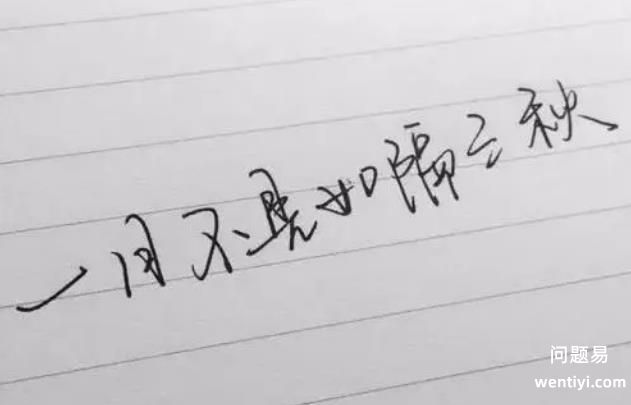 一日不见如隔三秋
问题易
wentiyi.com